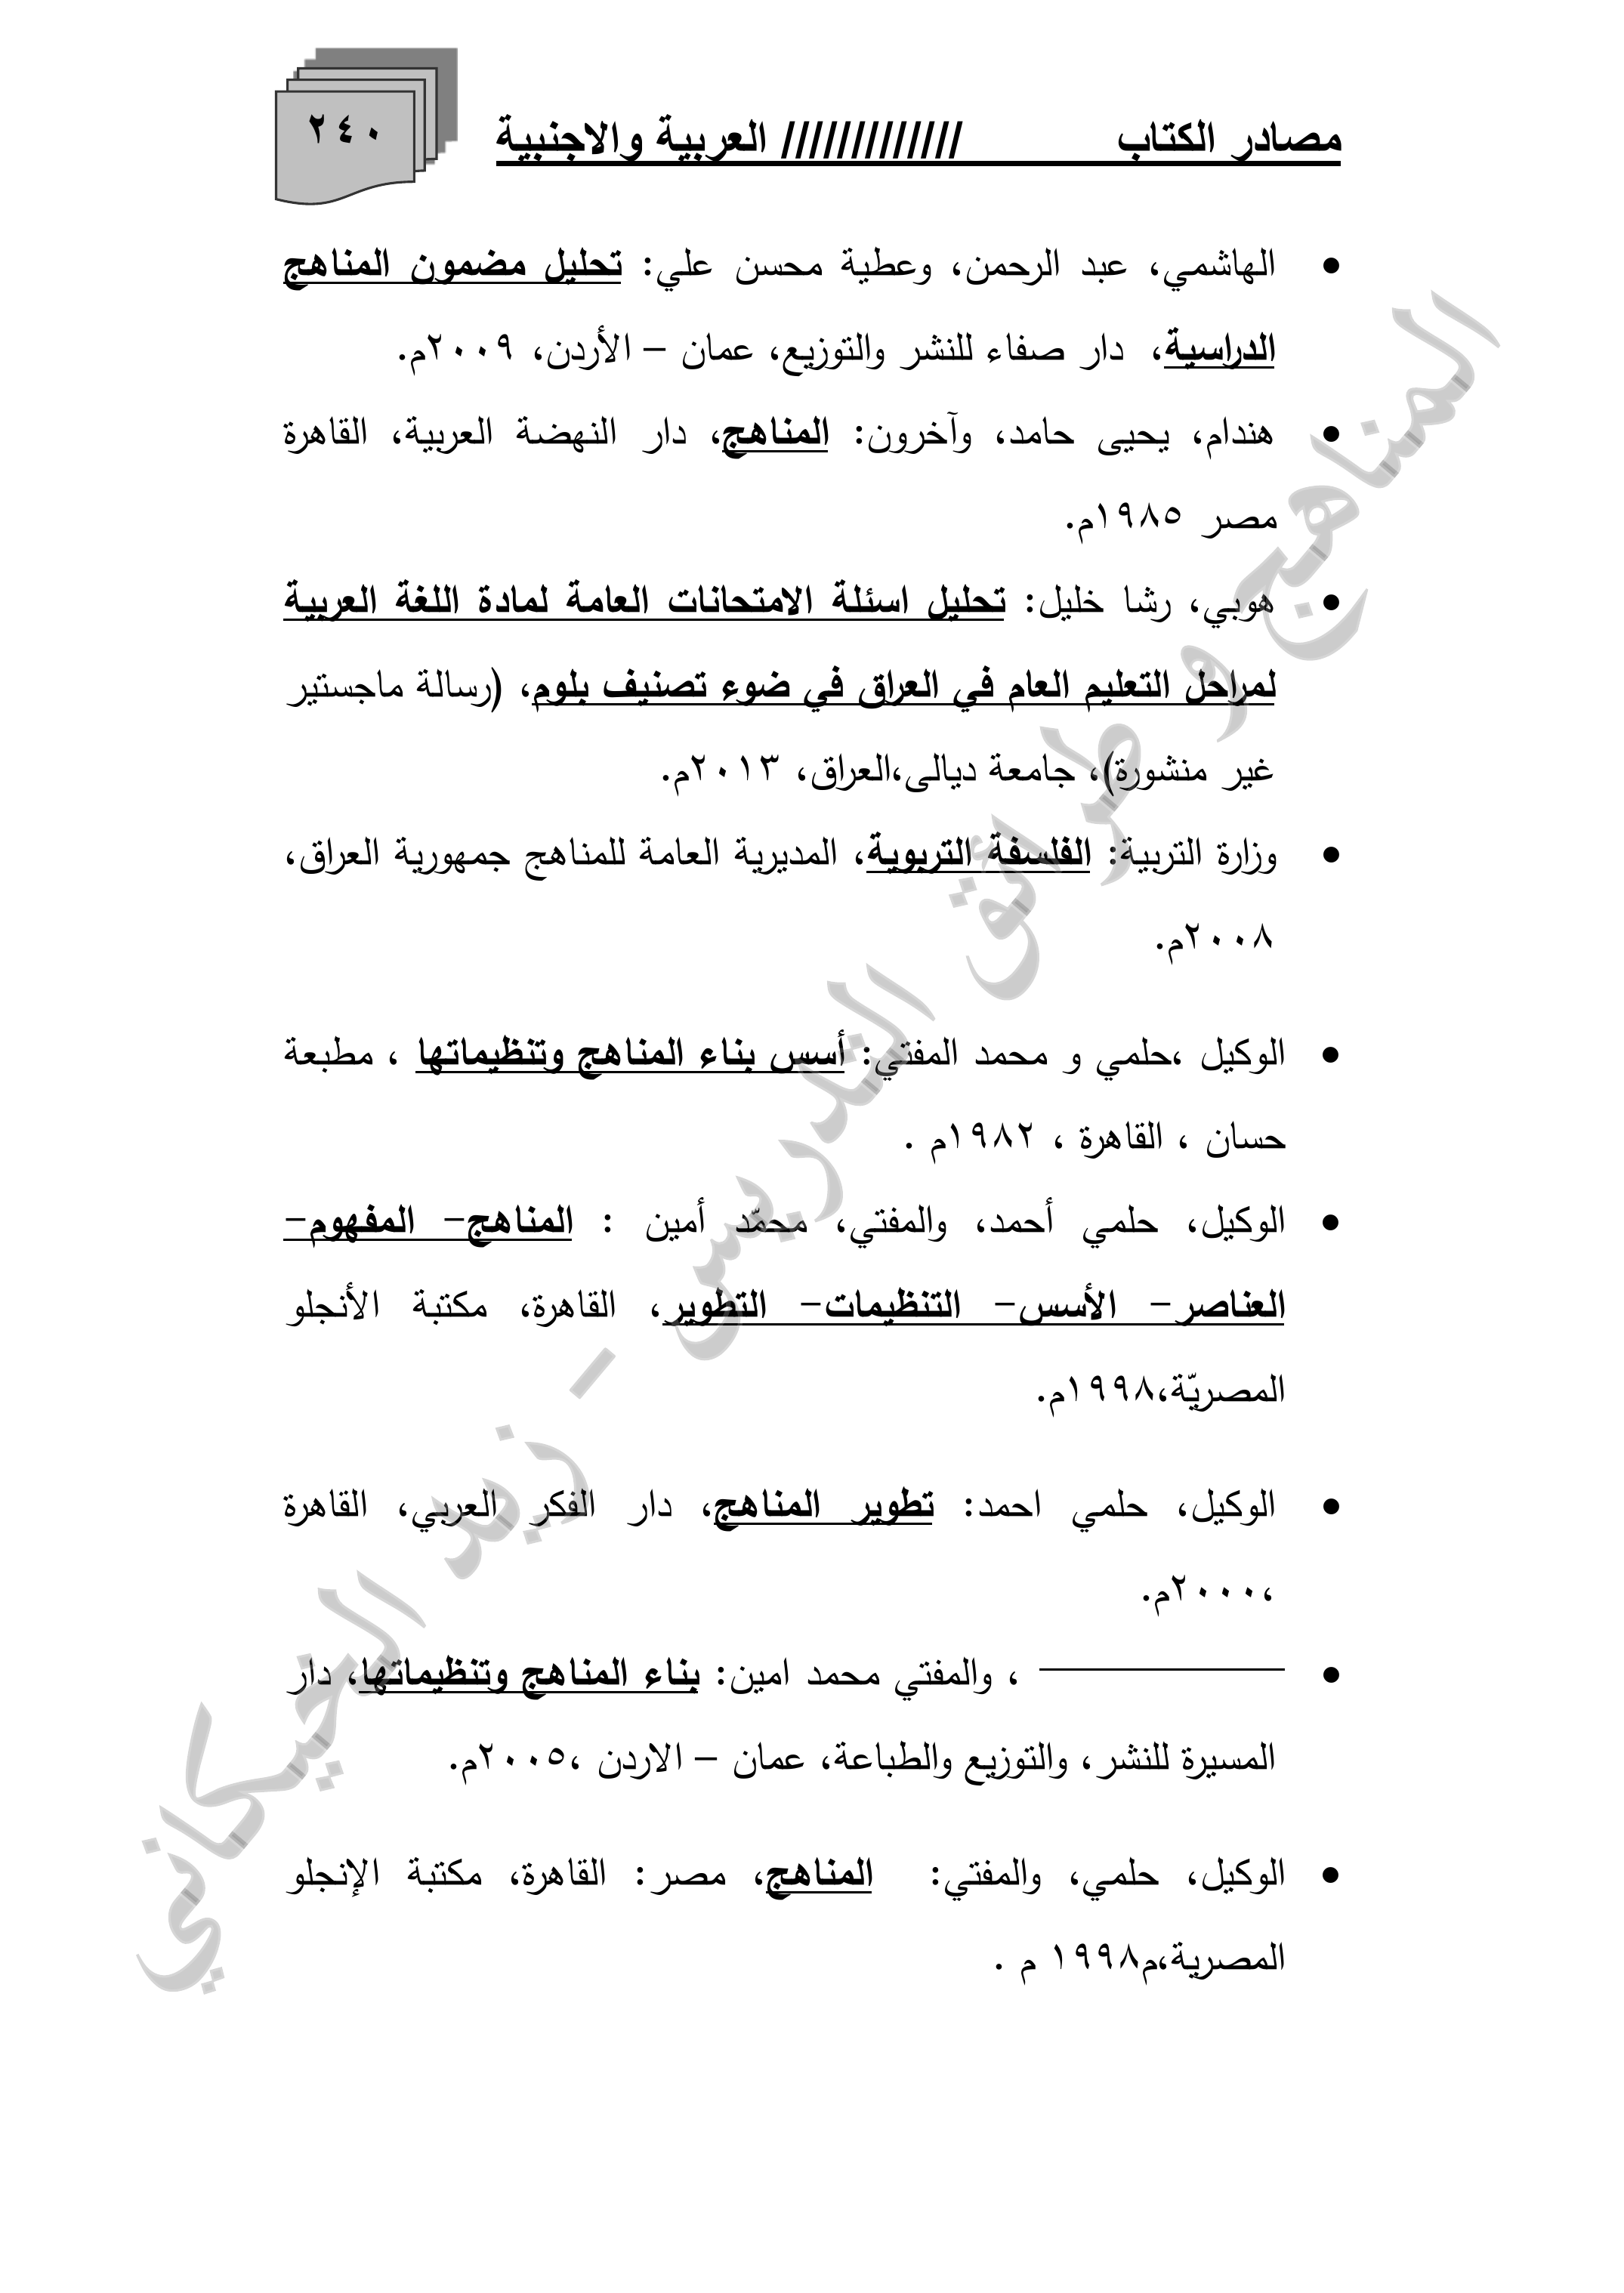 مصادر الكتاب ///////////// العربية والاجنبية
٢٤٠
• الهاشمي، عبد الرحمن، وعطية محسن علي: تحليل مضمون المناهج
الدراسية، دار صفاء للنشر والتوزيع، عمان – الأردن، ٢٠٠٩م.
• هندام، يحيى حامد، وآخرون: المناهج، دار النهضة العربية، القاهرة
مصر ١٩٨٥م.
• هوبي، رشا خليل: تحليل اسئلة الامتحانات العامة لمادة اللغة العربية
لمراحل التعليم العام في العراق في ضوء تصنيف بلوم، (رسالة ماجستير
غير منشورة)، جامعة ديالى،العراق، ٢٠١٣م.
• وزارة التربية: الفلسفة التربوية، المديرية العامة للمناهج جمهورية العراق،
٢٠٠٨م.
• الوكيل ،حلمي و محمد المفتي: أسس بناء المناهج وتنظيماتها ، مطبعة
حسان ، القاهرة ، ١٩٨٢م .
• الوكيل، حلمي أحمد، والمفتي، محمّد أمين : المناهج– المفهوم–
العناصر– الأسس– التنظيمات– التطوير، القاهرة، مكتبة الأنجلو
المصريّة،١٩٩٨م.
• الوكيل، حلمي احمد: تطوير المناهج، دار الفكر العربي، القاهرة
،٢٠٠٠م.
• ــــــــــــــــ ، والمفتي محمد امين: بناء المناهج وتنظيماتها، دار
المسيرة للنشر، والتوزيع والطباعة، عمان – الاردن ،٢٠٠٥م.
• الوكيل، حلمي، والمفتي: المناهج، مصر: القاهرة، مكتبة الإنجلو
المصرية،م١٩٩٨ م .
المناهج و طرائق التدريس - زيد الخيكاني